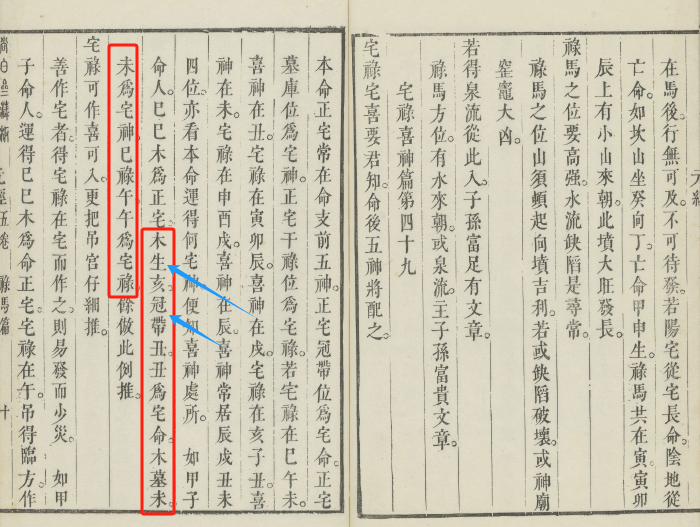 在馬後行無可及不可待發若陽宅從宅長命陰地從
亡命如坎山坐癸向丁亡命甲申生祿馬共在寅寅卯
辰上有小山來朝此墳大旺發長
祿馬之位要高强水流缺陷是尋常
祿馬之位山須頓起向墳吉利若或缺陷破壞或神廟
窰竈大凶
若得泉流從此入子孫富足有文章
祿馬方位有水來朝或泉流主子孫富貴文章
宅祿喜神篇第四十九
宅祿宅喜要君知命後五神將配之
本命正宅常在命支前五神正宅冠帶位爲宅命正宅
墓庫位爲宅神正宅干祿位爲宅祿若宅祿在巳午未
喜神在丑宅祿在寅卯辰喜神在戌宅祿在亥子丑喜
神在未宅祿在申酉戌喜神在辰喜神常居辰戌丑未
四位亦看本命運得何宅神便知喜神處所 如甲子
命人巳巳木爲正宅木生亥冠帶丑丑爲宅命木墓未
未爲宅神巳祿午午爲宅祿餘倣此例推
宅祿可作喜可入更把吊宮仔細推
善作宅者得宅祿在宅而作之則易發而少災 如甲
子命人運得巳巳木爲命正宅宅祿在午吊得臨方作
元經五卷 祿馬篇 十
元經